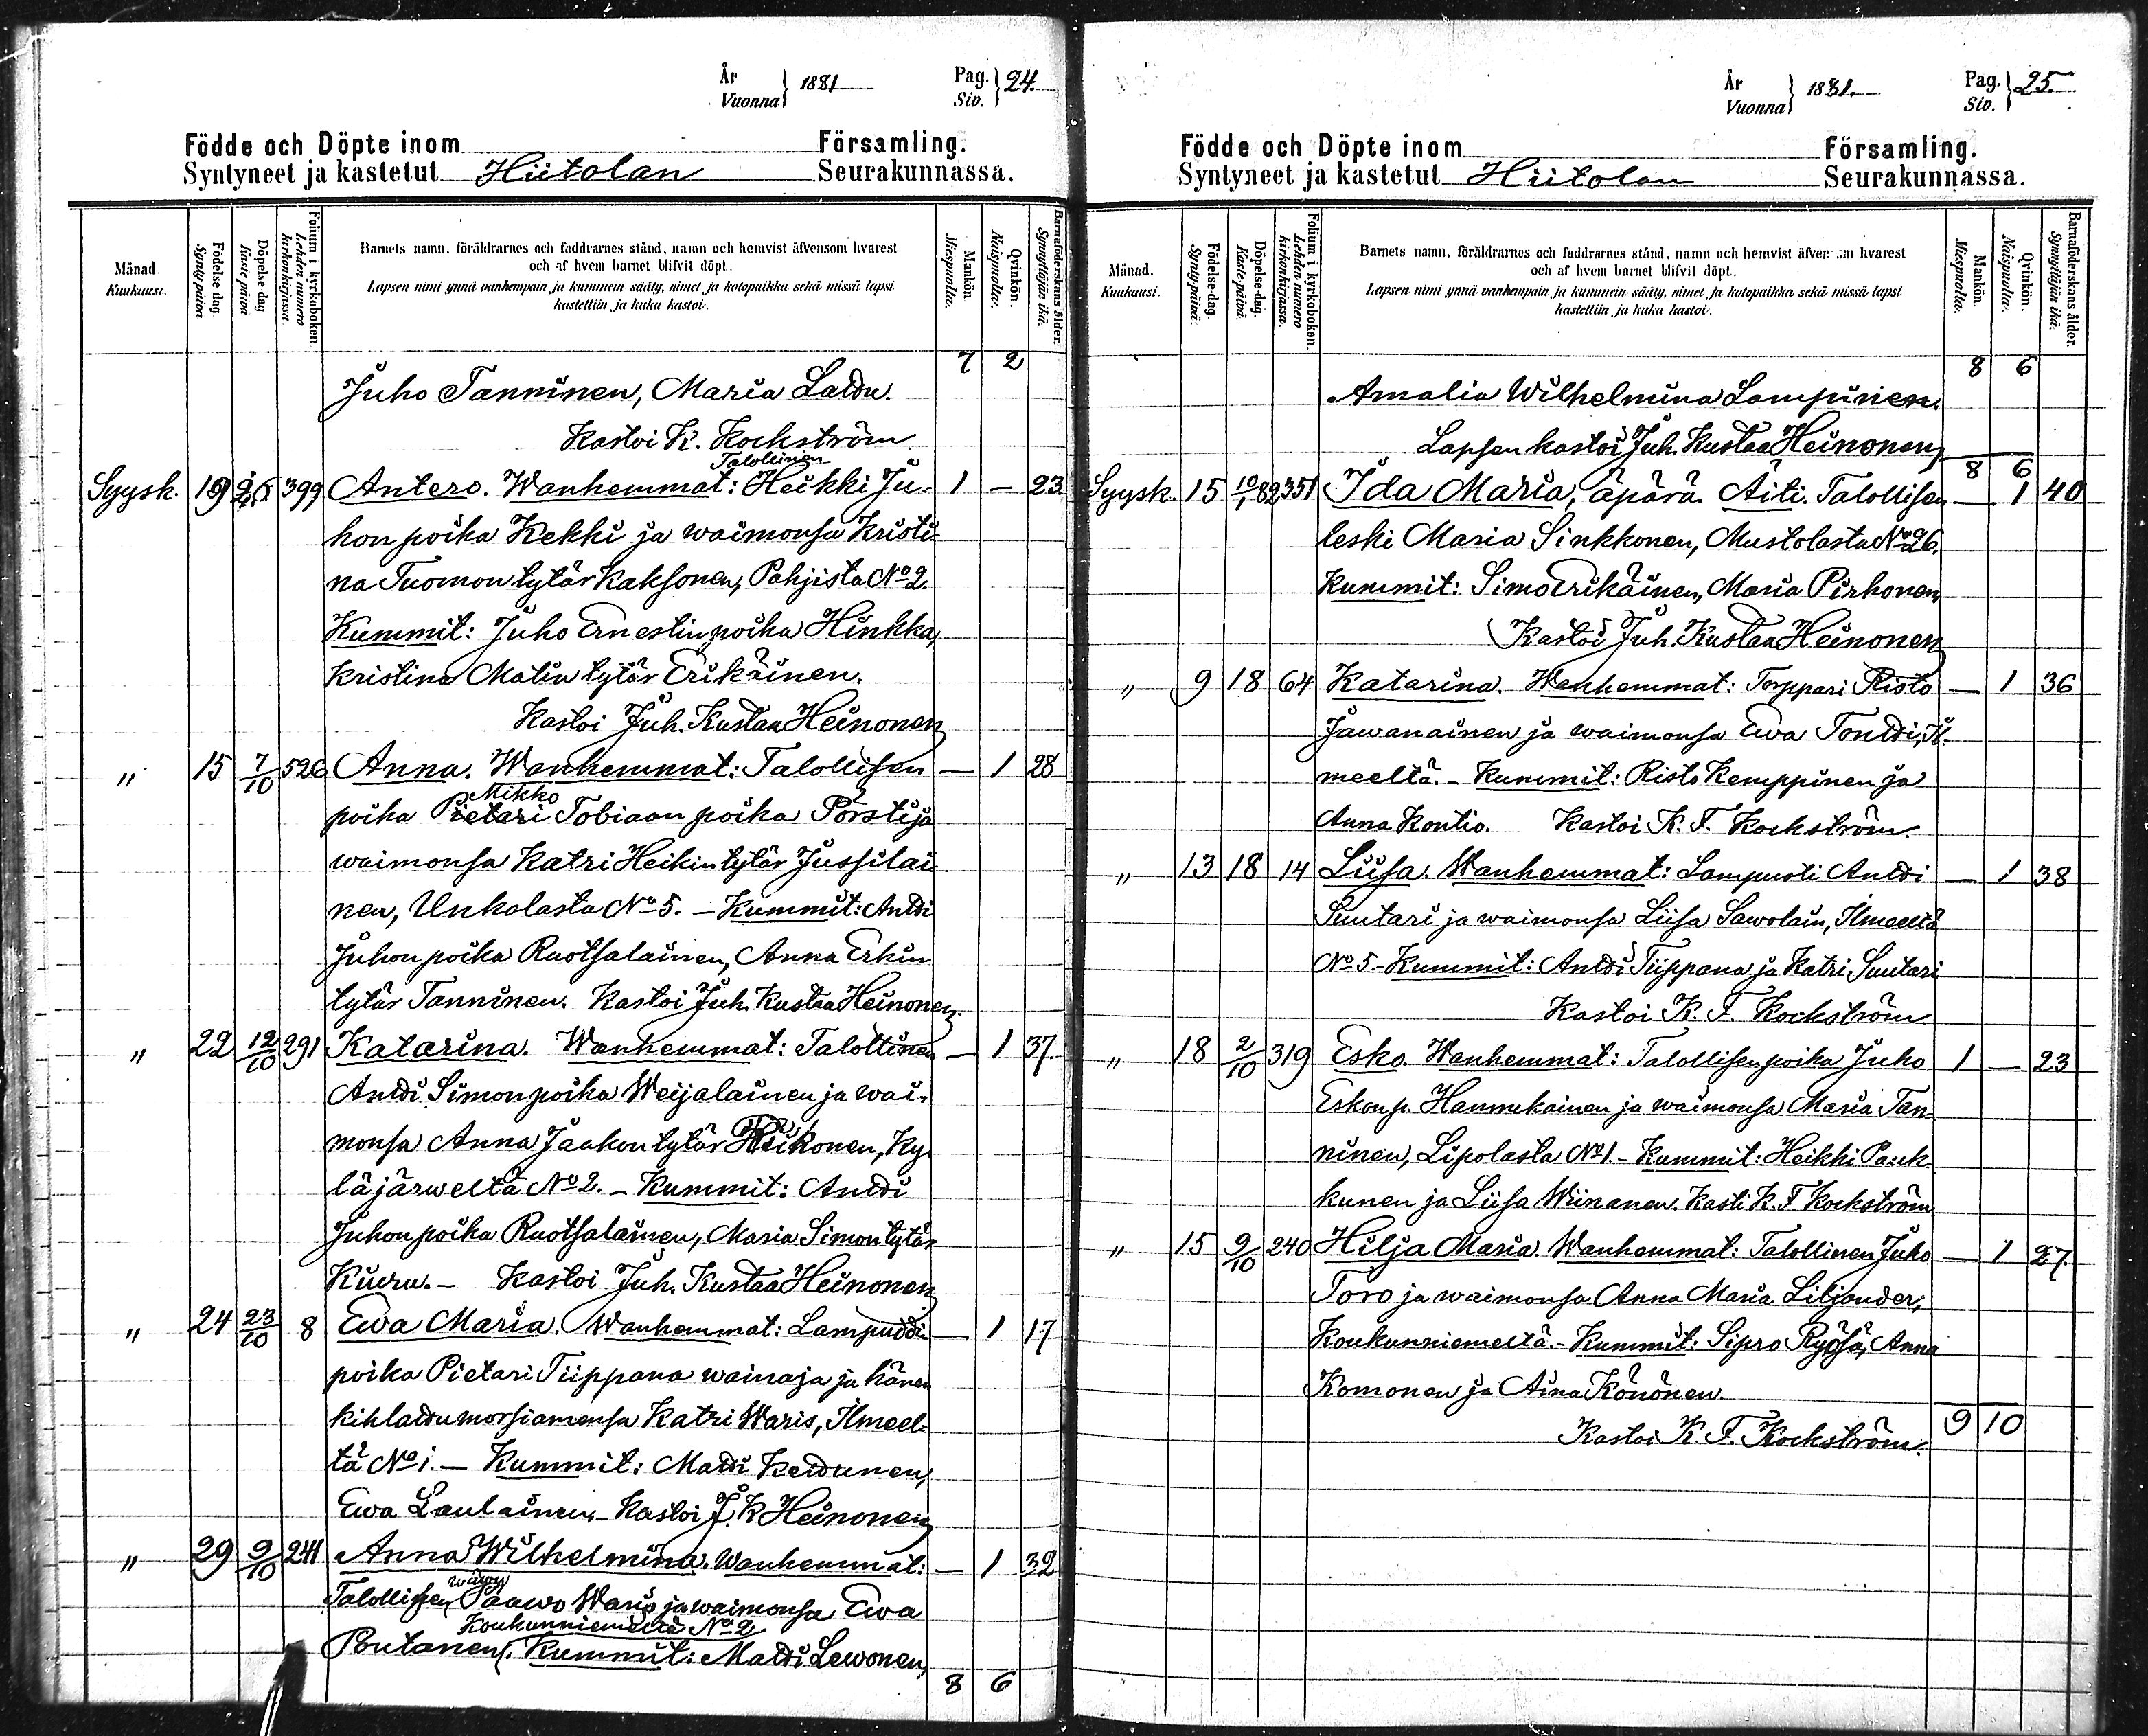 År
Vuonna } 1881
Pag.
Siv. } 24.
Födde och Döpte inom Församling.
Syntyneet ja kastetut Hiitolan Seurakunnassa.
Månad
Kuukausi.
Födelse dag
Synty päivä
Döpelse dag
Kaste päivä
Folium i kyrkoboken
Lehden numero kirkonkirjassa.
Barnets namn, föräldrarnes och faddrarnes stånd, namn och hemvist äfvensom hvarest
och af hvem barnet blifvit döpt.
Lapsen nimi ynnä vanhempain ja kummein sääty, nimet ja kotopaikka sekä missä lapsi
kastettiin ja kuka kastoi.
Mankön.
Miespuolia.
Qvinkön.
Naispuolia.
Barnaföderskans ålder.
Synnyttäjän ikä.
7 2
Juho Tanninen, Maria Lattu.
Kastoi K. Kockström
Talollinen
Syysk. 19 399 Antero. Wanhemmat: Heikki Ju- 1 — 23
hon poika Kekki ja waimonsa Kristi-
na Tuomon tytär Kaksonen, Pahjista No 2.
Kummit: Juho Ernestin poika Hinkka,
Kristina Matin tytär Erikäinen.
Kastoi Juh. Kustaa Heinonen
" 15 7/10 526 Anna. Wanhemmat: Talollisen — 1 28
Mikko
poika Pietari Tobiaan poika Pörsti ja
waimonsa Katri Heikin tytär Jussilai-
nen, Unkolasta No 5. – Kummit: Antti
Juhon poika Ruotsalainen, Anna Erkin
tytär Tanninen. Kastoi Juh. Kustaa Heinonen.
" 22 12/10 291 Katarina. Wanhemmat: Talollinen — 1 37.
Antti Simon poika Weijalainen ja wai-
monsa Anna Jaakon tytär, Ky-
läjärweltä No 2. – Kummit: Antti
Juhon poika Ruotsalainen, Maria Simon tytär
Kiuru. – Kastoi Juh. Kustaa Heinonen
" 24 23/10 8 Ewa Maria. Wanhemmat: Lampuotti — 1 17
poika Pietari Tiippana wainaja ja hänen
kihlattu morsiamensa Katri Waris, Ilmeel-
tä No 1. – Kummit: Matti Kettunen,
Ewa Laulainen. – Kastoi J. K Heinonen
" 29 9/10 241 Anna Wilhelmina. Wanhemmat: — 1 32
wäwy
Talollisen Paawo Waris ja waimonsa Ewa
Koukunniemeltä No 2
Poutanen. Kummit: Matti Lewonen,
8 6
År
Vuonna } 1881.
Pag.
Siv. } 25.
Födde och Döpte inom Församling.
Syntyneet ja kastetut Hiitolan Seurakunnassa.
Månad.
Kuukausi.
Födelse-dag.
Synty-päivä.
Döpelse-dag.
Kaste-päivä.
Folium i kyrkoboken.
Lehden numero kirkonkirjassa.
Barnets namn, föräldrarnes och faddrarnes stånd, namn och hemvist äfvensom hvarest
och af hvem barnet blifvit döpt.
Lapsen nimi ynnä vanhempain ja kummein sääty, nimet ja kotopaikka sekä missä lapsi
kastettiin ja kuka kastoi.
Mankön.
Miespuolia.
Qvinkön.
Naispuolia.
Barnaföderskans ålder.
Synnyttäjän ikä.
8 6
Amalia Wilhelmina Lampinen.
Lapsen kastoi Juh. Kustaa Heinonen
8 6
Syysk. 15 10/1 82 351 Ida Maria, äpärä. Äiti. Talollisen — 1 40
leski Maria Sinkkonen, Mustolasta No 26.
Kummit: Simo Erikäinen, Maria Pirhonen
Kastoi Juh. Kustaa Heinonen
" 9 18 64 Katarina. Wanhemmat: Torppari Risto — 1 36
Jawanainen ja waimonsa Ewa Tontti, Il-
meeltä. – Kummit: Risto Kemppinen ja
Anna Kontio. Kastoi K. F. Kockström.
" 13 18 14 Liisa. Wanhemmat: Lampuoti Antti — 1 38
Suutari ja waimonsa Liisa Sawolain, Ilmeeltä
No 5. – Kummit: Antti Tiippana ja Katri Suutari
Kastoi K. F. Kockström
" 18 2/10 319 Esko. Wanhemmat: Talollisen poika Juho 1 — 23
Eskon p. Hannukainen ja waimonsa Maria Tan-
ninen, Lipolasta No 1. – Kummit: Heikki Pauk-
kunen ja Liisa Wiinanen. Kasti K. F Kockström
" 15 9/10 240 Hilja Maria. Wanhemmat: Talollinen Juho — 1 27.
Toro ja waimonsa Anna Maria Liljander,
Koukunniemeltä. – Kummit: Sipro Ryösä, Anna
Komonen ja Aina Könönen.
Kastoi K. F. Kockström.
9 10